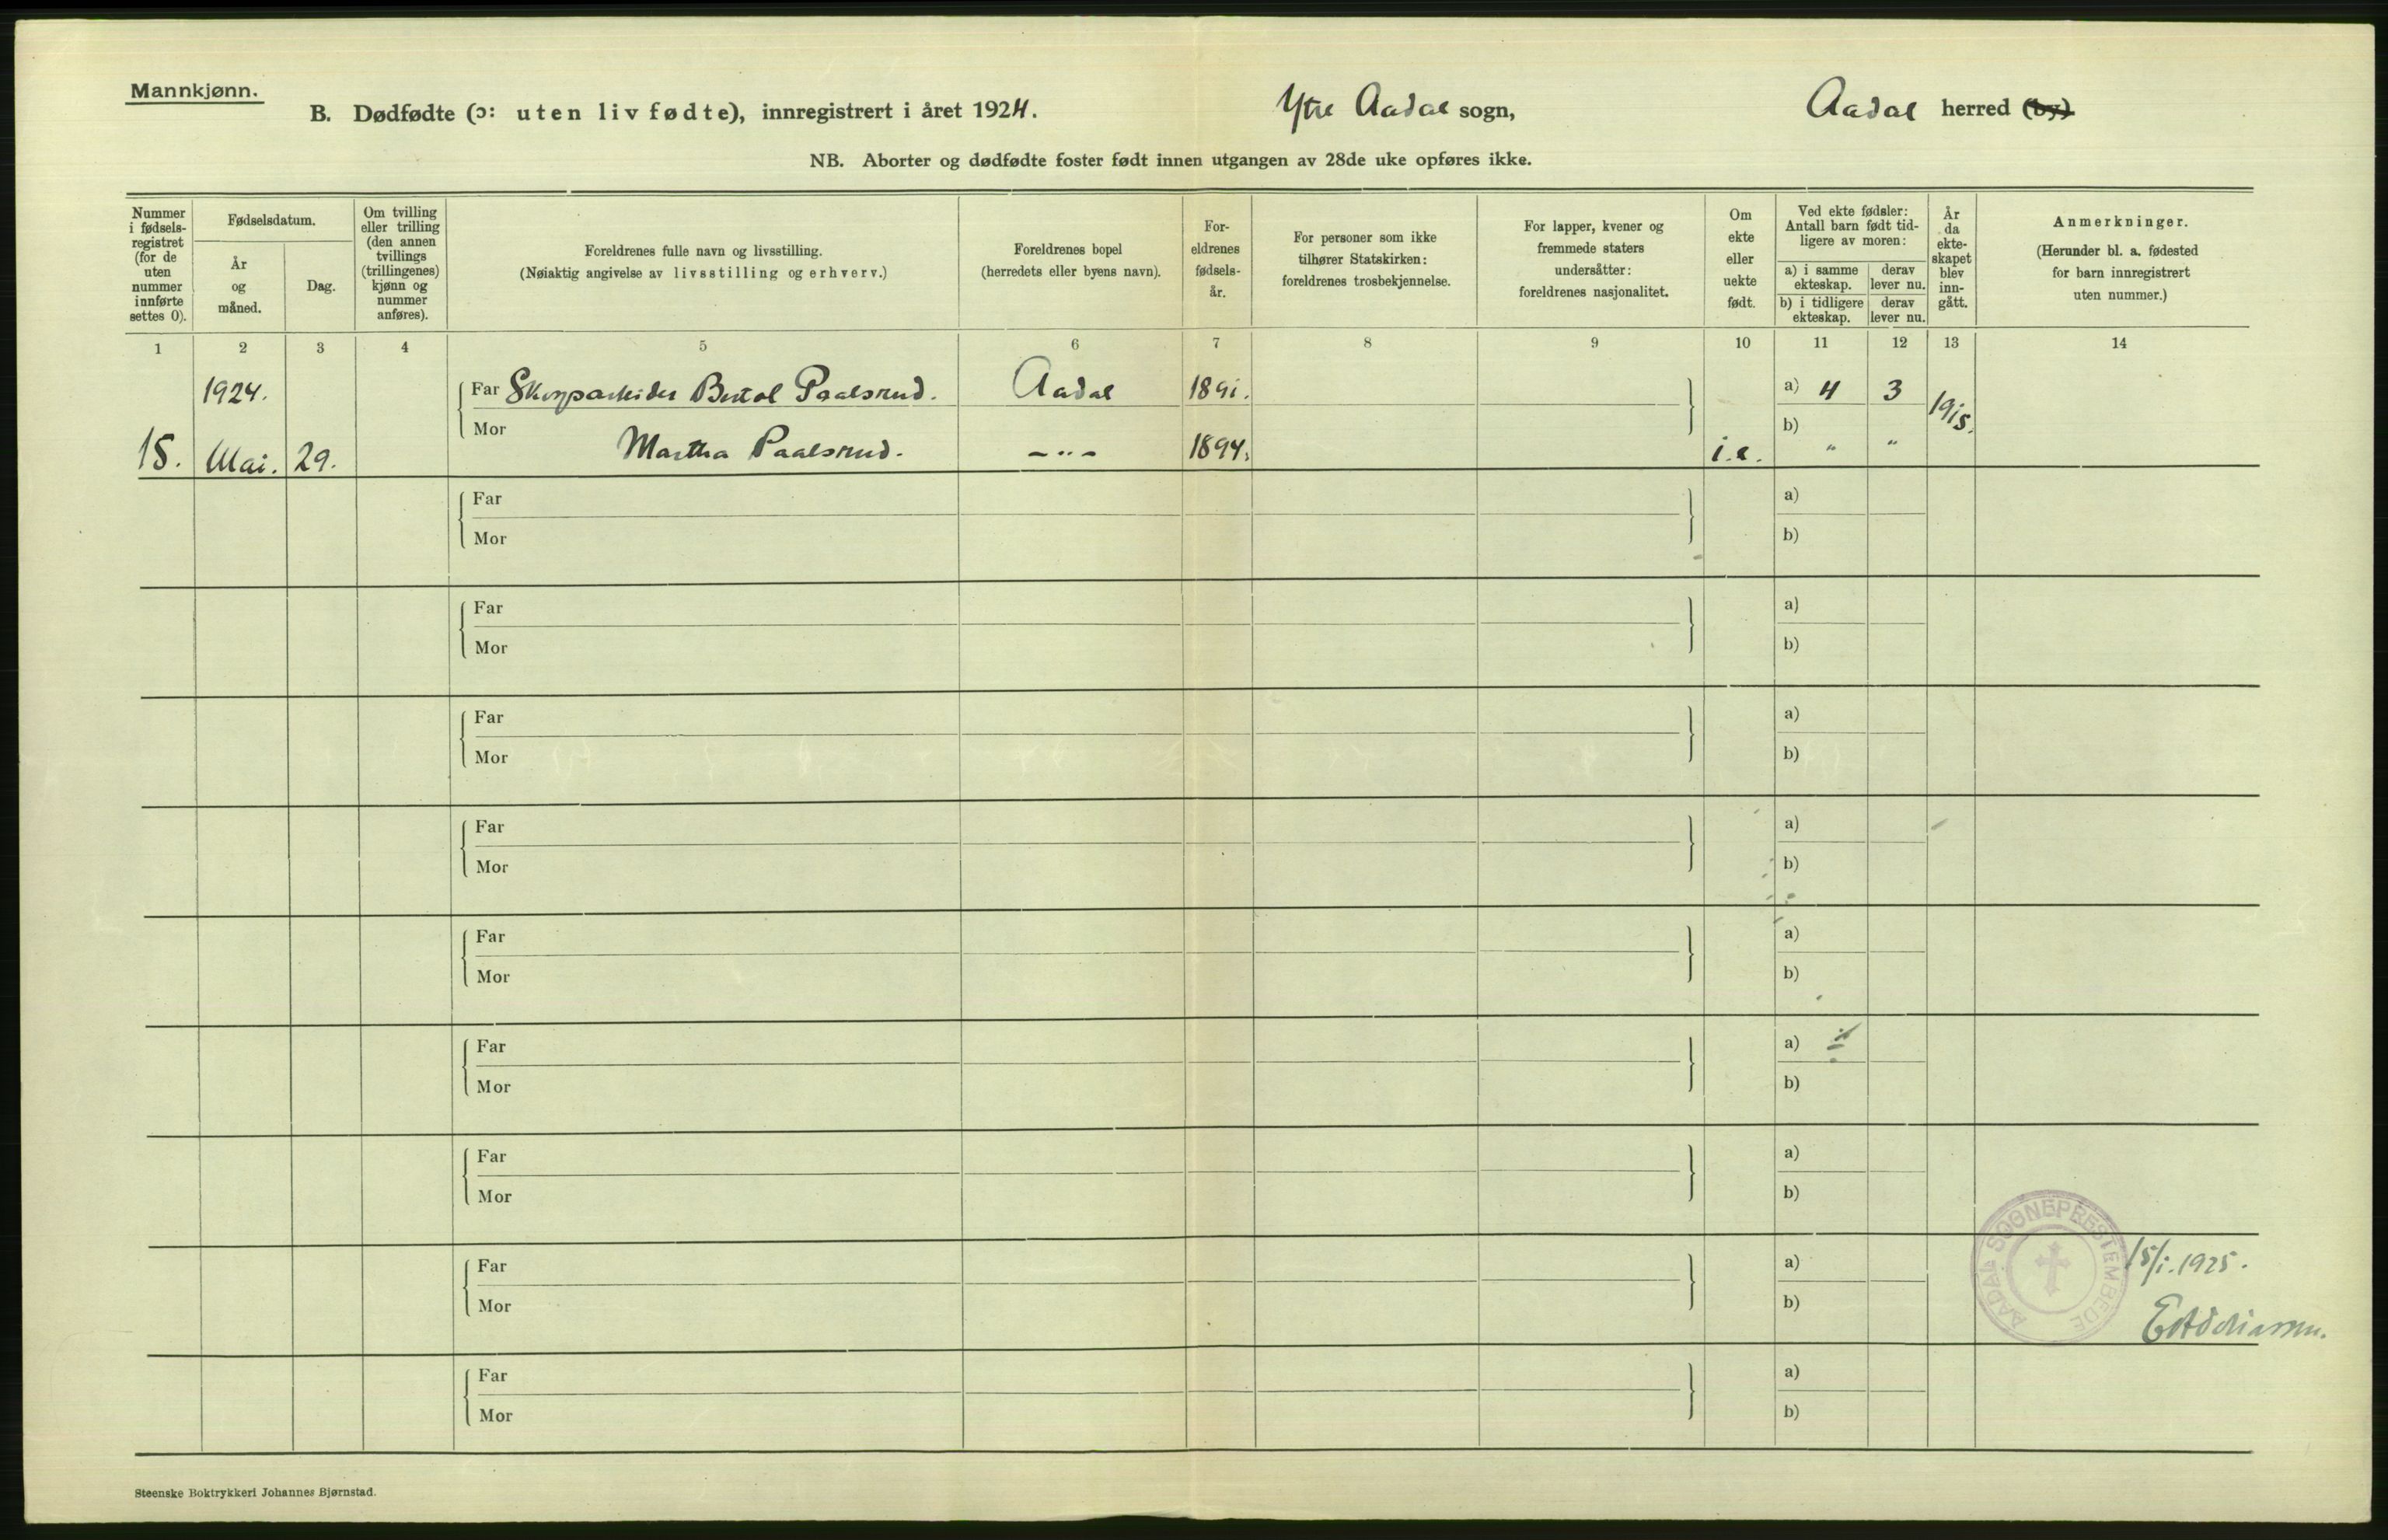 Mannkjønn.
B. Dødfødte (ɔ: uten liv fødte), innregistrert i året 1924. Ytre Aadal sogn, Aadal herred (by)
NB. Aborter og dødfødte foster født innen utgangen av 28de uke opføres ikke.
Nummer i fødsels-registret (for de uten nummer innførte settes 0).
Fødselsdatum.
År og måned.
Dag.
Om tvilling eller trilling (den annen tvillings (trillingenes) kjønn og nummer anføres).
Foreldrenes fulle navn og livsstilling.
(Nøiaktig angivelse av livsstilling og erhverv.)
Foreldrenes bopel
(herredets eller byens navn).
For-eldrenes fødsels-år.
For personer som ikke tilhører Statskirken: foreldrenes trosbekjennelse.
For lapper, kvener og fremmede staters undersåtter: foreldrenes nasjonalitet.
Om ekte eller uekte født.
Ved ekte fødsler: Antall barn født tid-ligere av moren:
a) i samme ekteskap.
derav lever nu.
b) i tidligere ekteskap.
derav lever nu.
År da ekte-skapet blev inn-gått.
Anmerkninger.
(Herunder bl. a. fødested for barn innregistrert uten nummer.)
1 2 3 4 5 6 7 8 9 10 11 12 13 14
1924. Far Skogsarbeider Bertol Paalsrud. Aadal 1891. a) 4 3 1915.
15. Mai. 29. Mor Martha Paalsrud. -"- 1894. i.e. b) " "
Far a)
Mor b)
Far a)
Mor b)
Far a)
Mor b)
Far a)
Mor b)
Far a)
Mor b)
Far a)
Mor b)
Far a)
Mor b)
Far a)
Mor b)
AADAL SOGNEPRESTEMBEDE
15/1.1925.
Far a)
Mor b)
Steenske Boktrykkeri Johannes Bjørnstad.